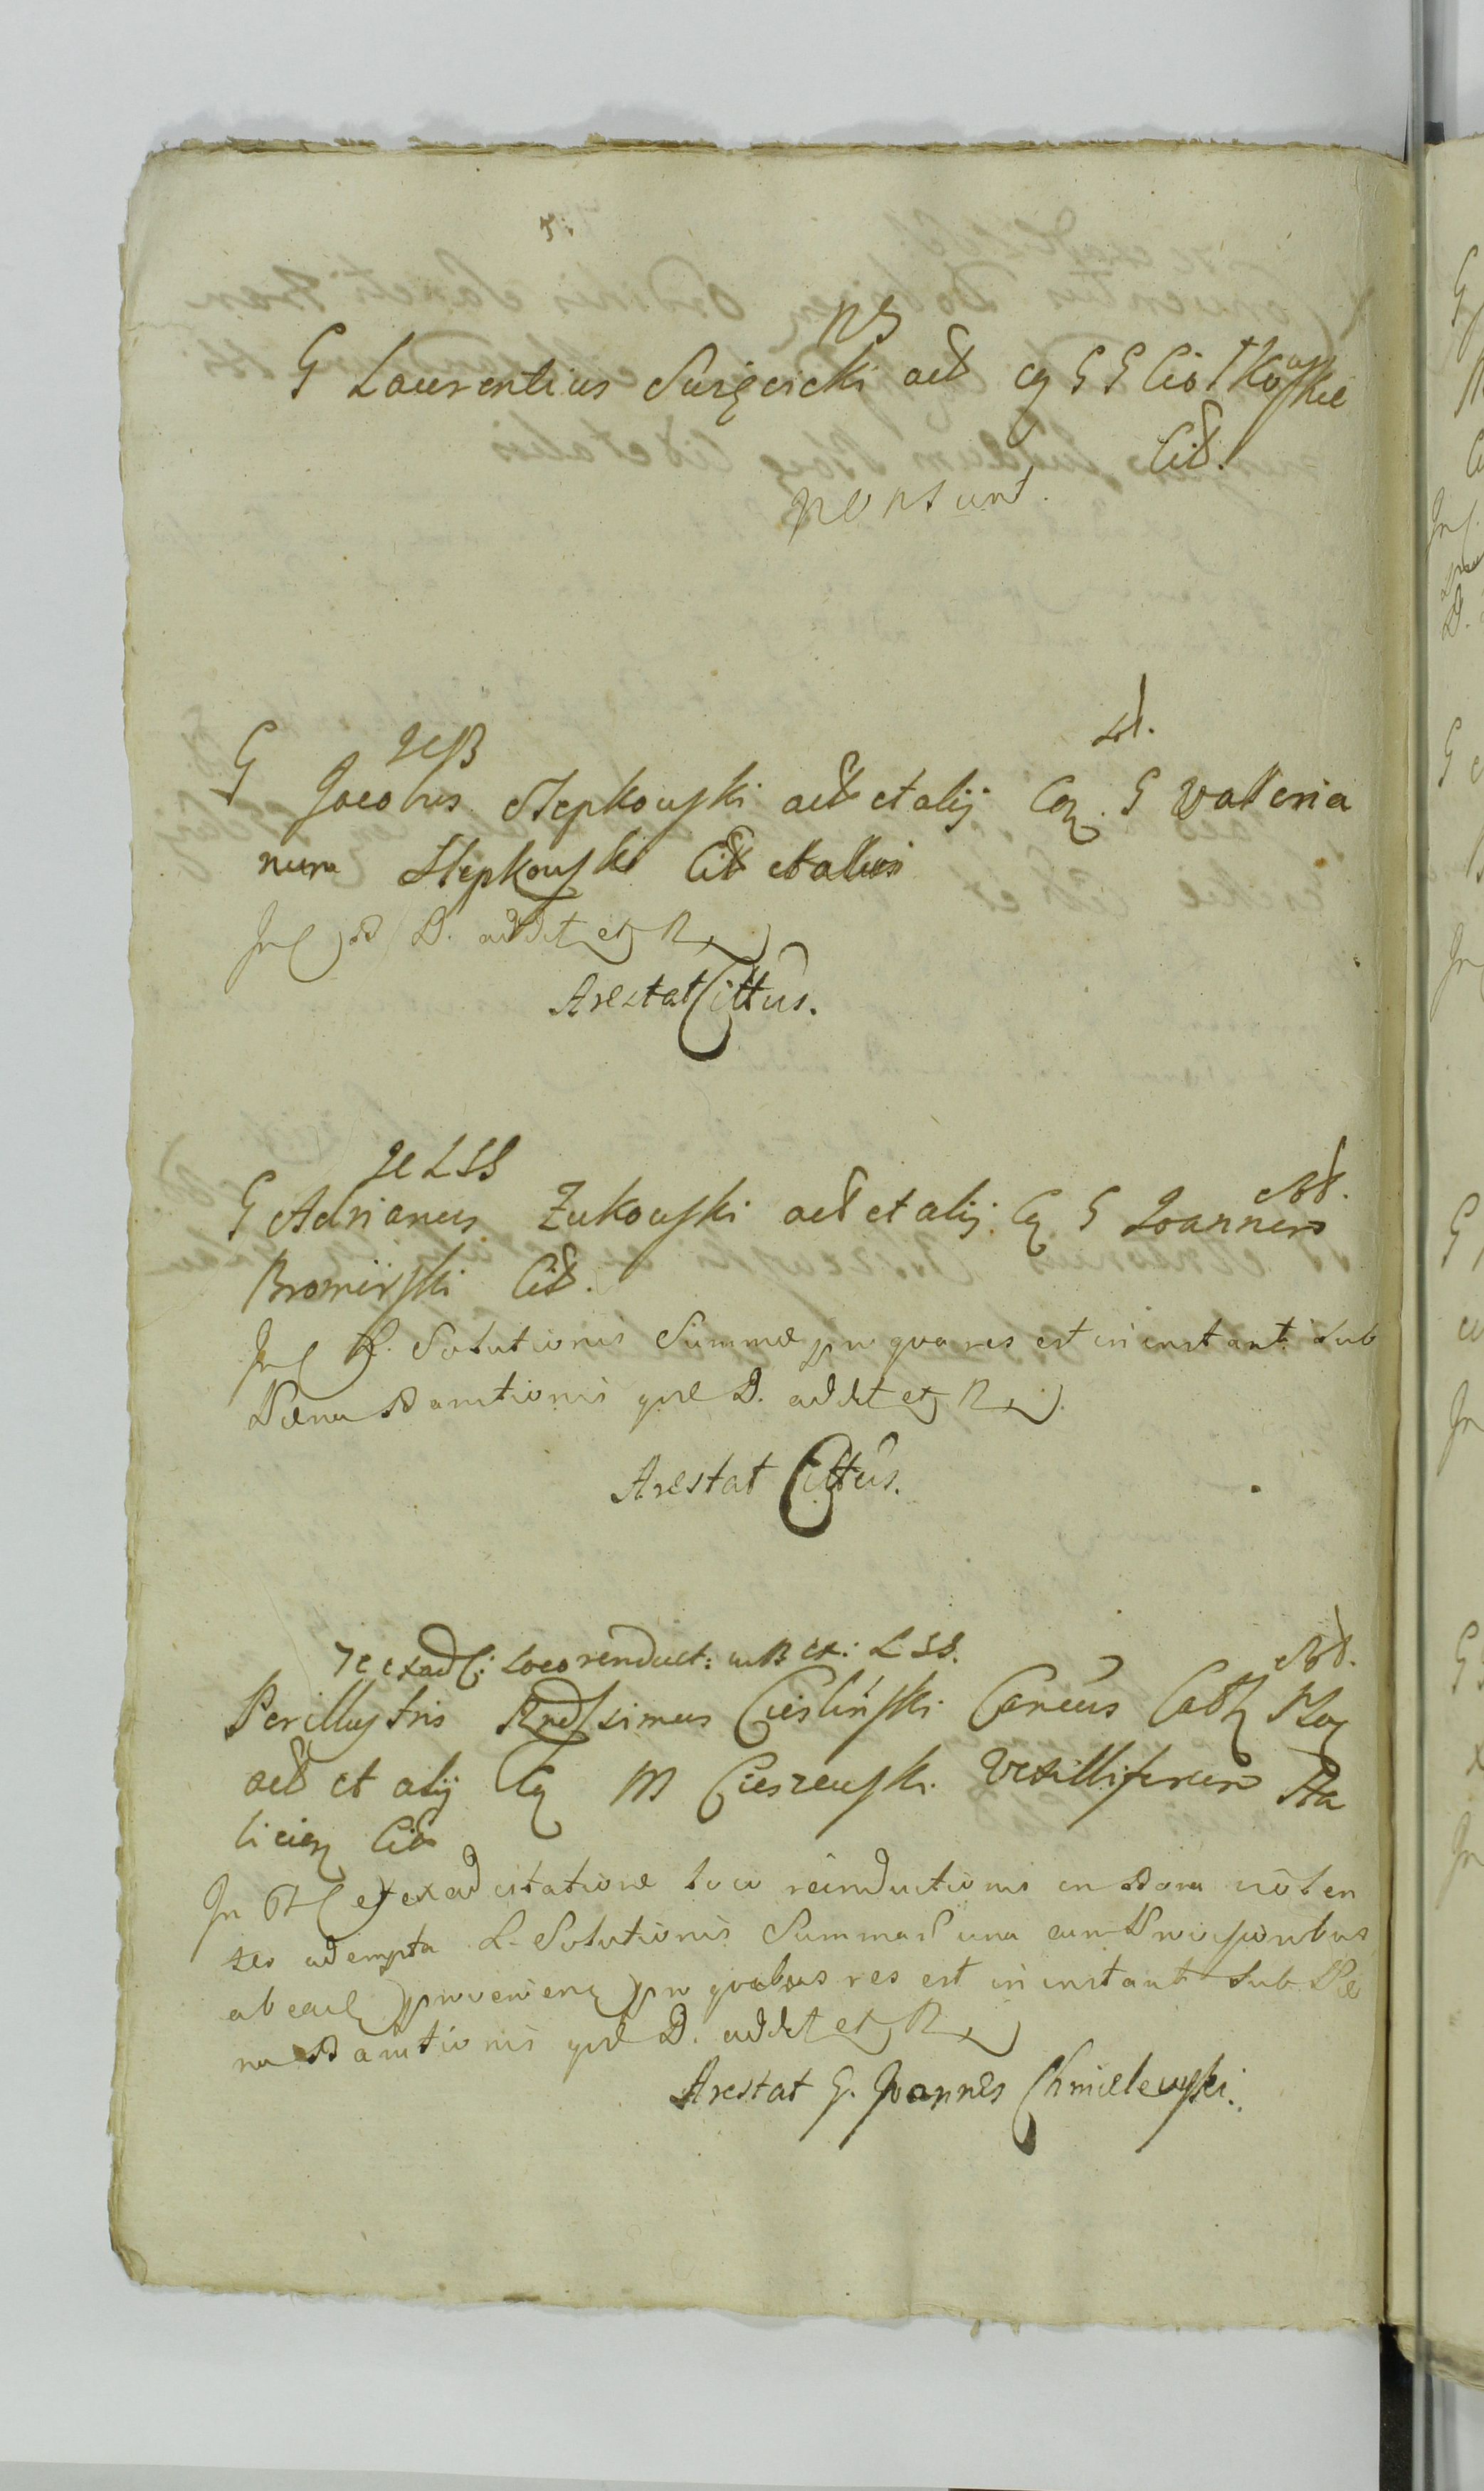 ns
G Laurentius Suięcicki act cq G G Ciołkowskie
Cit.
non sunt.
G Jacobus Stepkowski act et alij Cq. G Valeria
num Stepkowski Cit et alios
D. addt etq R
Arestat Cittus.
Je LSS
G Adrianus Zukowski act et alij Cq G Joannem
Bromirski Cit.
L. Solutionis Summæ pro qua res est in instant: sub
Pæna Bannitionis que D. addt etq R
Arestat Cittus.
loco reinduct: in B et: LSS.
Perillustris Rndssimus Cieslinski Cancus Cathq Plocq
act et alij Cq M Cieszewski Vexilliferum Ha
licienq Cit
ex citatione loco reinductionis in Bona
adempta L. Solutionis Summar una cum Provisionibus
ab eadq provenienq pro quibus res est in instant: sub Pæ
na Bannitionis que D. addt etq R
Arestat G. Joannes Chmielewski.